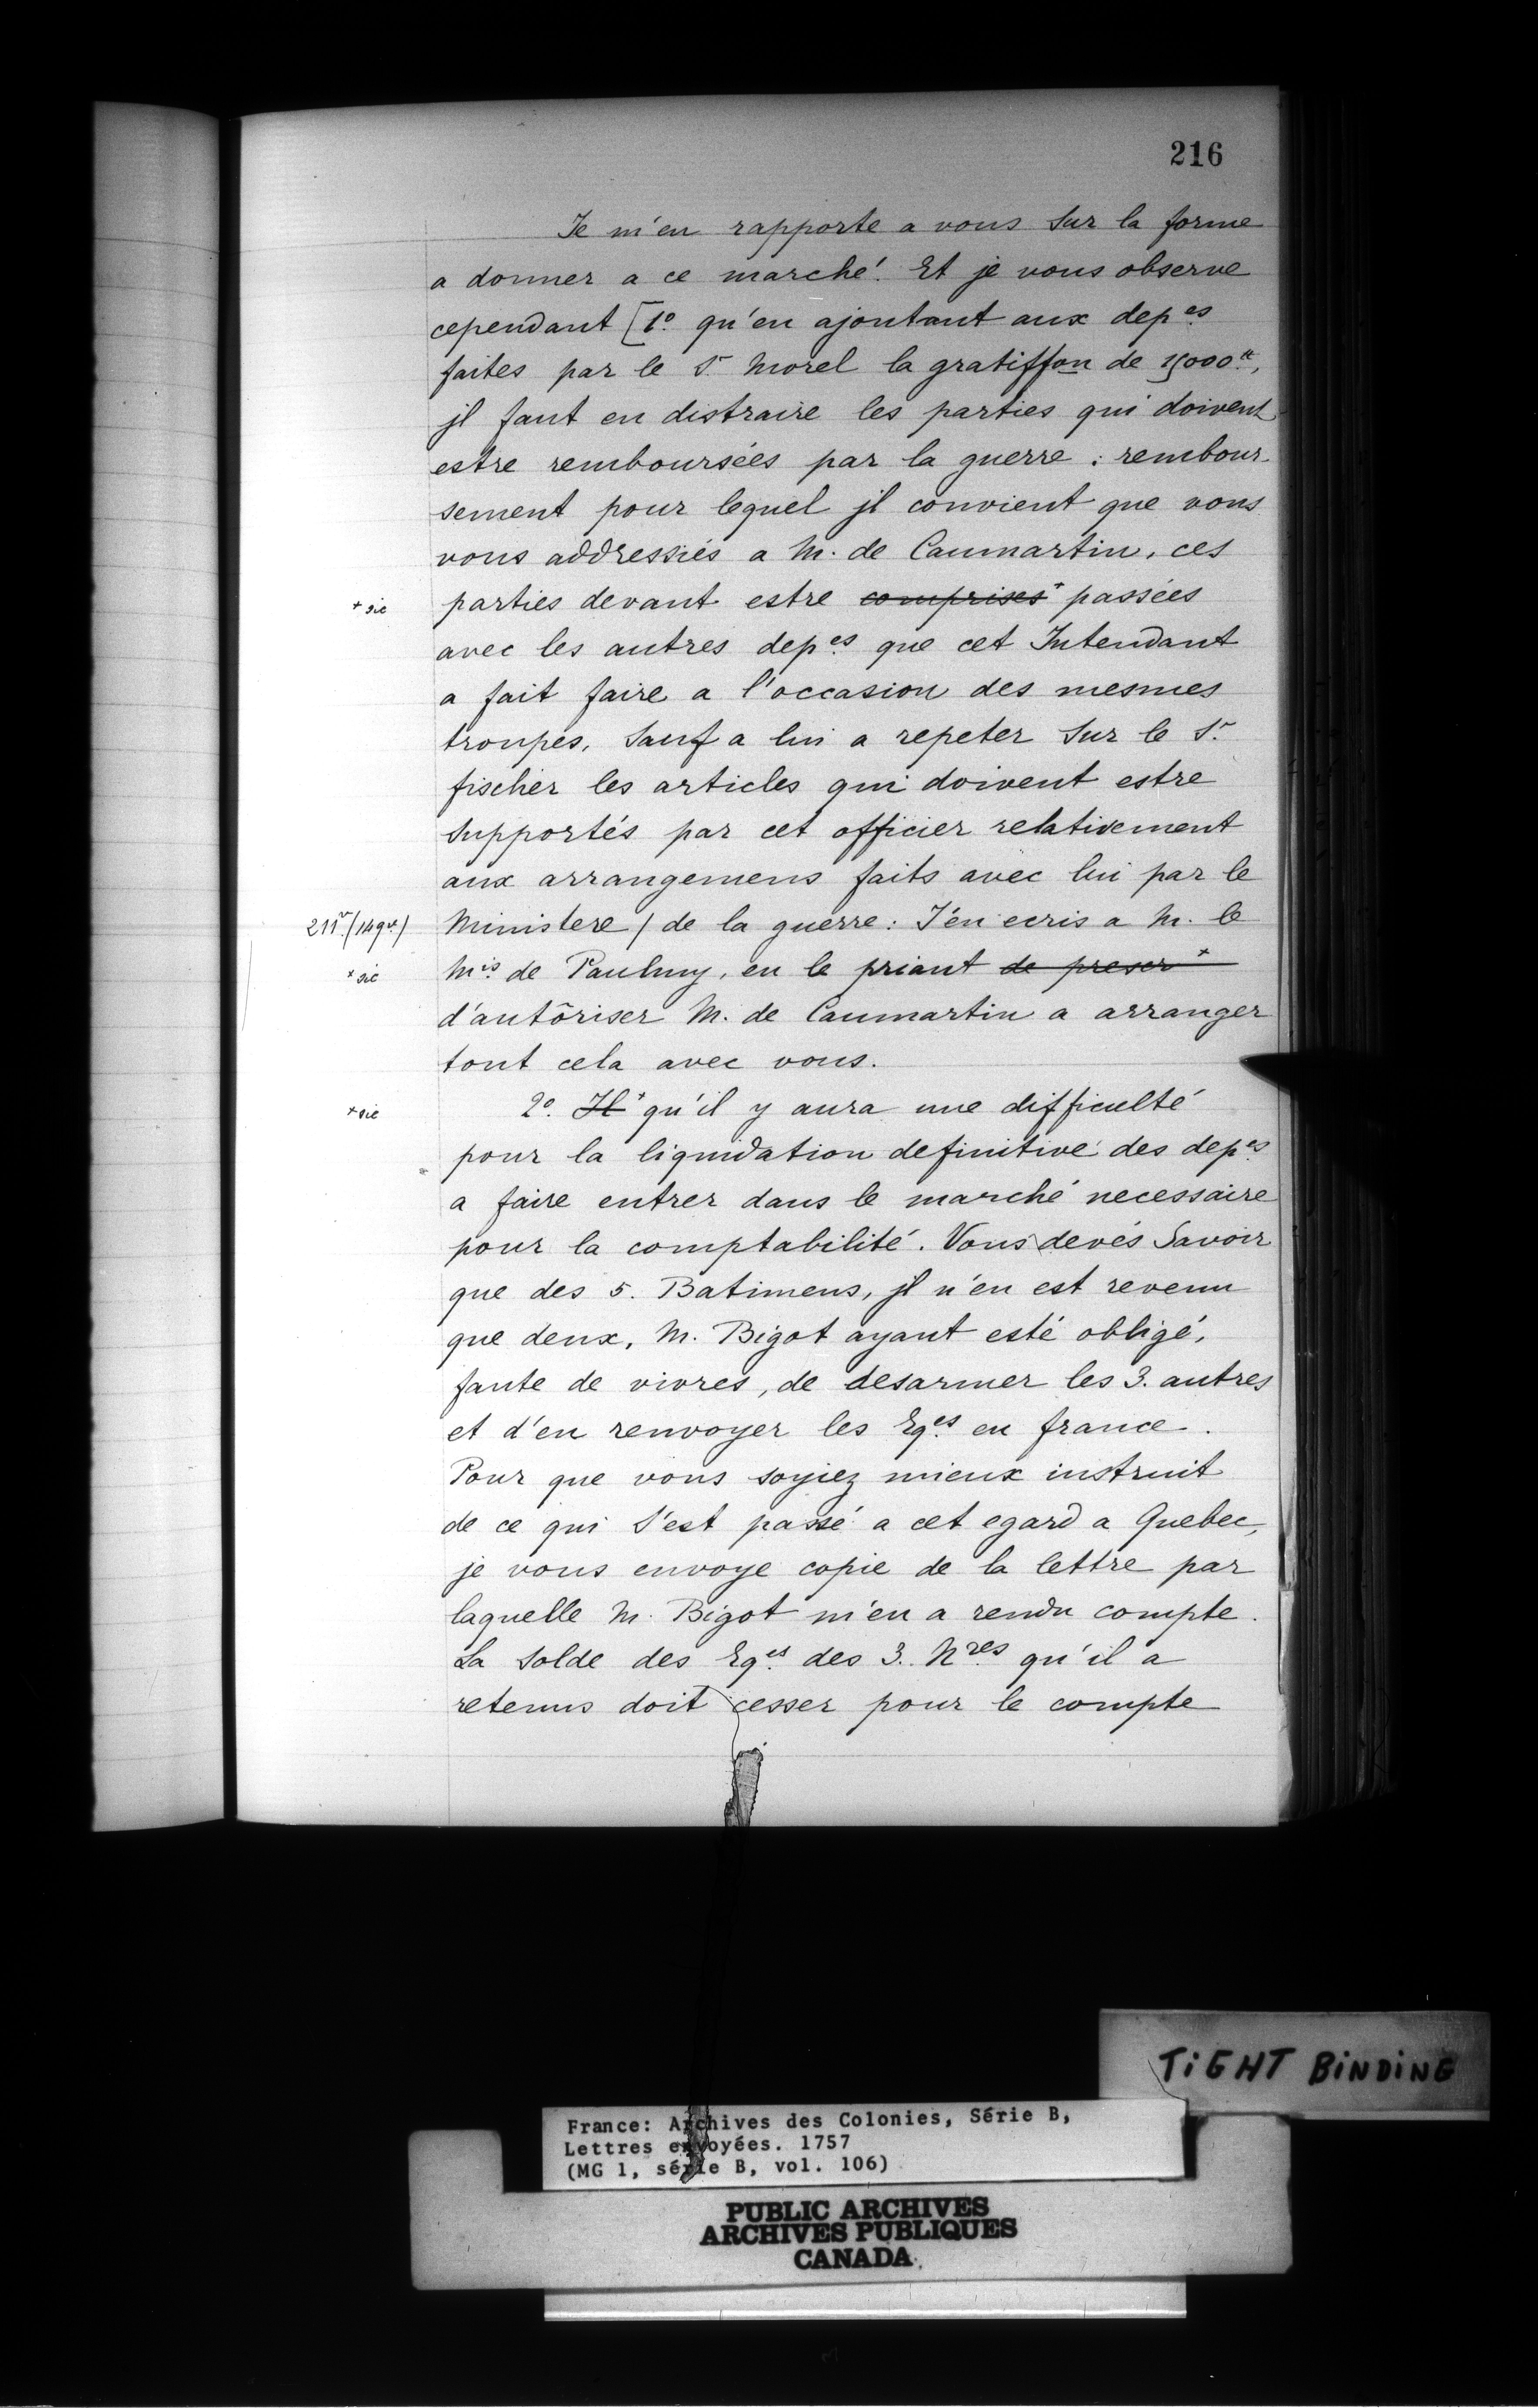 216
Je m'en rapporte a vous Sur la forme
a donner a ce marché. Et je vous observe
cependant [1º. qu'en ajoutant aux dep.es
faites par le S.r Morel la gratiffon de 15000.tt,
jl faut en distraire les parties qui doivent
estre remboursées par la guerre : rembour
sement pour lequel jl convient que vous
vous addressiés a M. de Caumartin, ces
+ sic parties devant estre comprises+ passées
avec les autres dep.es que cet Intendant
a fait faire a l'occasion des mesmes
troupes, Sauf a lui a repeter Sur le S.r
fischer les articles qui doivent estre
Supportés par cet officier relativement
aux arrangemens faits avec lui par le
211.v/(149vº/) Ministere / de la guerre : J'en ecris a M. le
+ sic M.is de Paulmy, en le priant de prescr+
d'autôriser M. de Caumartin a arranger
tout cela avec vous.
+ sic 2º. Il+ qu'il y aura une difficulté
pour la liquidation definitive des dep.es
a faire entrer dans le marché necessaire
pour la comptabilité. Vous devés Savoir
que des 5. Batimens, jl n'en est revenu
que deux, M. Bigot ayant esté obligé,
faute de vivres, de desarmer les 3. autres
et d'en renvoyer les Eq.es en france.
Pour que vous soyiez mieux instruit
de ce qui S'est passé a cet egard a Quebec,
je vous envoye copie de la lettre par
laquelle M. Bigot m'en a rendu compte.
La Solde des Eq.es des 3. N.res qu'il a
retenus doit cesser pour le compte
TiGHT BiNDiNG
France: Archives des Colonies, Série B,
Lettres envoyées. 1757
(MG 1, série B, vol. 106)
PUBLIC ARCHIVES
ARCHIVES PUBLIQUES
CANADA